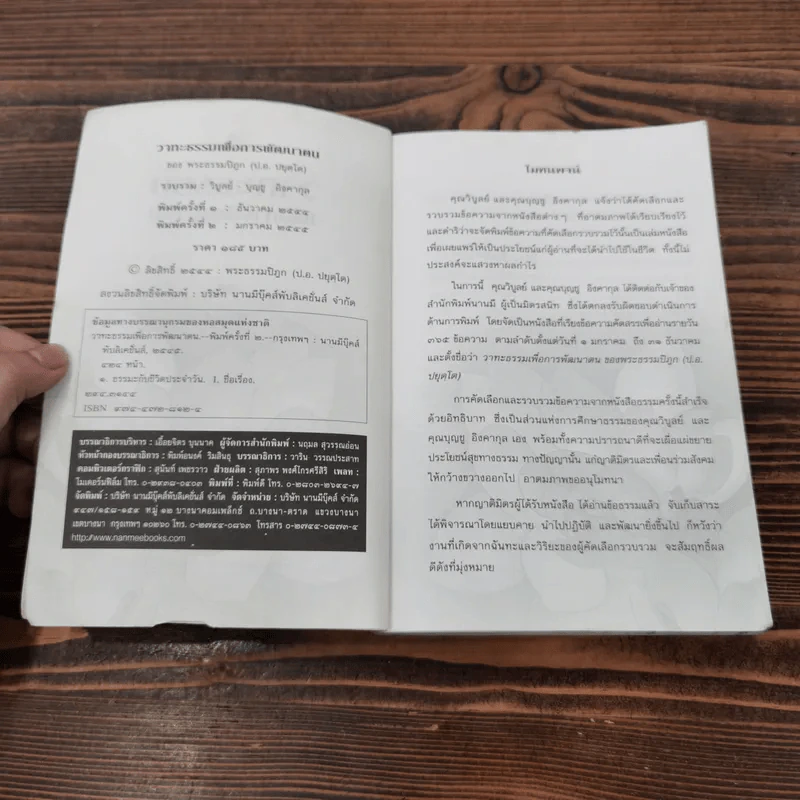 วาทะธรรมเพื่อการพัฒนาตน
ของ พระธรรมปิฎก (ป.อ. ปยุตฺโต)
รวบรวม : วิบูลย์ - บุญชู อิงคากุล
พิมพ์ครั้งที่ ๑ : ธันวาคม ๒๕๔๔
พิมพ์ครั้งที่ ๒ : มกราคม ๒๕๔๕
ราคา ๑๘๕ บาท
© ลิขสิทธิ์ ๒๕๔๔ : พระธรรมปิฎก (ป.อ. ปยุตฺโต)
สงวนลิขสิทธิ์จัดพิมพ์ : บริษัท นานมีบุ๊คส์พับลิเคชั่นส์ จำกัด
ข้อมูลทางบรรณานุกรมของหอสมุดแห่งชาติ
วาทะธรรมเพื่อการพัฒนาตน.--พิมพ์ครั้งที่ ๒.--กรุงเทพฯ : นานมีบุ๊คส์
พับลิเคชั่นส์, ๒๕๔๕.
๔๒๔ หน้า.
๑. ธรรมะกับชีวิตประจำวัน. I. ชื่อเรื่อง.
๒๙๔.๓๑๔๔
ISBN ๙๗๔-๔๗๒-๘๑๒-๔
บรรณาธิการบริหาร : เอื้อยจิตร บุนนาค ผู้จัดการสำนักพิมพ์ : นฤมล สุวรรณอ่อน
หัวหน้ากองบรรณาธิการ : พิมพ์อนงค์ ริมสินธุ บรรณาธิการ : วาริน วรรณประสาท
คอมพิวเตอร์กราฟิก : สุนันท์ เพชรวาว ฝ่ายผลิต : สุภาพร พงศ์ไกรศรีสิริ เพลท :
โมเดอร์นฟิล์ม โทร. ๐-๒๙๓๘-๐๔๐๓ พิมพ์ที่ : พิมพ์ดี โทร. ๐-๒๘๐๓-๒๖๙๔-๗
จัดพิมพ์ : บริษัท นานมีบุ๊คส์พับลิเคชั่นส์ จำกัด จัดจำหน่าย : บริษัท นานมีบุ๊คส์ จำกัด
๔๔๗/๑๕๘-๑๕๙ หมู่ ๑๒ บางนาคอมเพล็กซ์ ถ.บางนา-ตราด แขวงบางนา
เขตบางนา กรุงเทพฯ ๑๐๒๖๐ โทร. ๐-๒๗๔๔-๐๘๖๓ โทรสาร ๐-๒๗๔๔-๐๘๗๓-๔
http://www.nanmeebooks.com
โมทนพจน์
คุณวิบูลย์ และคุณบุญชู อิงคากุล แจ้งว่าได้คัดเลือกและ
รวบรวมข้อความจากหนังสือต่างๆ ที่อาตมภาพได้เรียบเรียงไว้
และดำริว่าจะจัดพิมพ์ข้อความที่คัดเลือกรวบรวมไว้นั้นเป็นเล่มหนังสือ
เพื่อเผยแพร่ให้เป็นประโยชน์แก่ผู้อ่านที่จะได้นำไปใช้ในชีวิต ทั้งนี้ไม่
ประสงค์จะแสวงหาผลกำไร
ในการนี้ คุณวิบูลย์ และคุณบุญชู อิงคากุล ได้ติดต่อกับเจ้าของ
สำนักพิมพ์นานมี ผู้เป็นมิตรสนิท ซึ่งได้ตกลงรับผิดชอบดำเนินการ
ด้านการพิมพ์ โดยจัดเป็นหนังสือที่เรียงข้อความคัดสรรเพื่ออ่านรายวัน
๓๖๕ ข้อความ ตามลำดับตั้งแต่วันที่ ๑ มกราคม ถึง ๓๑ ธันวาคม
และตั้งชื่อว่า วาทะธรรมเพื่อการพัฒนาตน ของพระธรรมปิฎก (ป.อ.
ปยุตฺโต)
การคัดเลือกและรวบรวมข้อความจากหนังสือธรรมครั้งนี้สำเร็จ
ด้วยอิทธิบาท ซึ่งเป็นส่วนแห่งการศึกษาธรรมของคุณวิบูลย์ และ
คุณบุญชู อิงคากุล เอง พร้อมทั้งความปรารถนาดีที่จะเผื่อแผ่ขยาย
ประโยชน์สุขทางธรรม ทางปัญญานั้น แก่ญาติมิตรและเพื่อนร่วมสังคม
ให้กว้างขวางออกไป อาตมภาพขออนุโมทนา
หากญาติมิตรผู้ได้รับหนังสือ ได้อ่านข้อธรรมแล้ว จับเก็บสาระ
ได้พิจารณาโดยแยบคาย นำไปปฏิบัติ และพัฒนายิ่งขึ้นไป ก็หวังว่า
งานที่เกิดจากฉันทะและวิริยะของผู้คัดเลือกรวบรวม จะสัมฤทธิ์ผล
ดีดังที่มุ่งหมาย